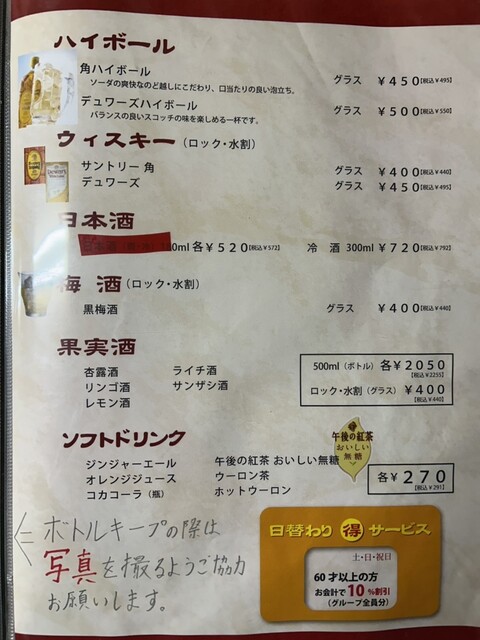 ハイボール
角ハイボール グラス ¥450【税込¥495】
ソーダの爽快なのど越しにこだわり、口当たりの良い泡立ち。
デュワーズハイボール グラス ¥500【税込¥550】
バランスの良いスコッチの味を楽しめる一杯です。
ウィスキー(ロック・水割)
サントリー 角 グラス ¥400【税込¥440】
デュワーズ グラス ¥450【税込¥495】
日本酒
0ml 各¥520【税込¥572】 冷 酒 300ml ¥720【税込¥792】
梅 酒(ロック・水割)
黒梅酒 グラス ¥400【税込¥440】
果実酒
杏露酒 ライチ酒
リンゴ酒 サンザシ酒
レモン酒
500ml(ボトル) 各¥2050
【税込¥2255】
ロック・水割(グラス)¥400
【税込¥440】
ソフトドリンク
午後の紅茶
おいしい
無糖
ジンジャーエール 午後の紅茶 おいしい無糖
オレンジジュース ウーロン茶
コカコーラ(瓶) ホットウーロン
各¥270
【税込¥291】
ボトルキープの際は
写真を撮るようご協力
お願いします。
日替わり 得 サービス
土・日・祝日
60才以上の方
お会計で10%割引
(グループ全員分)